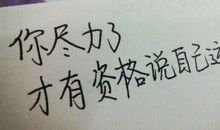 你尽力了
才有资格说自己这